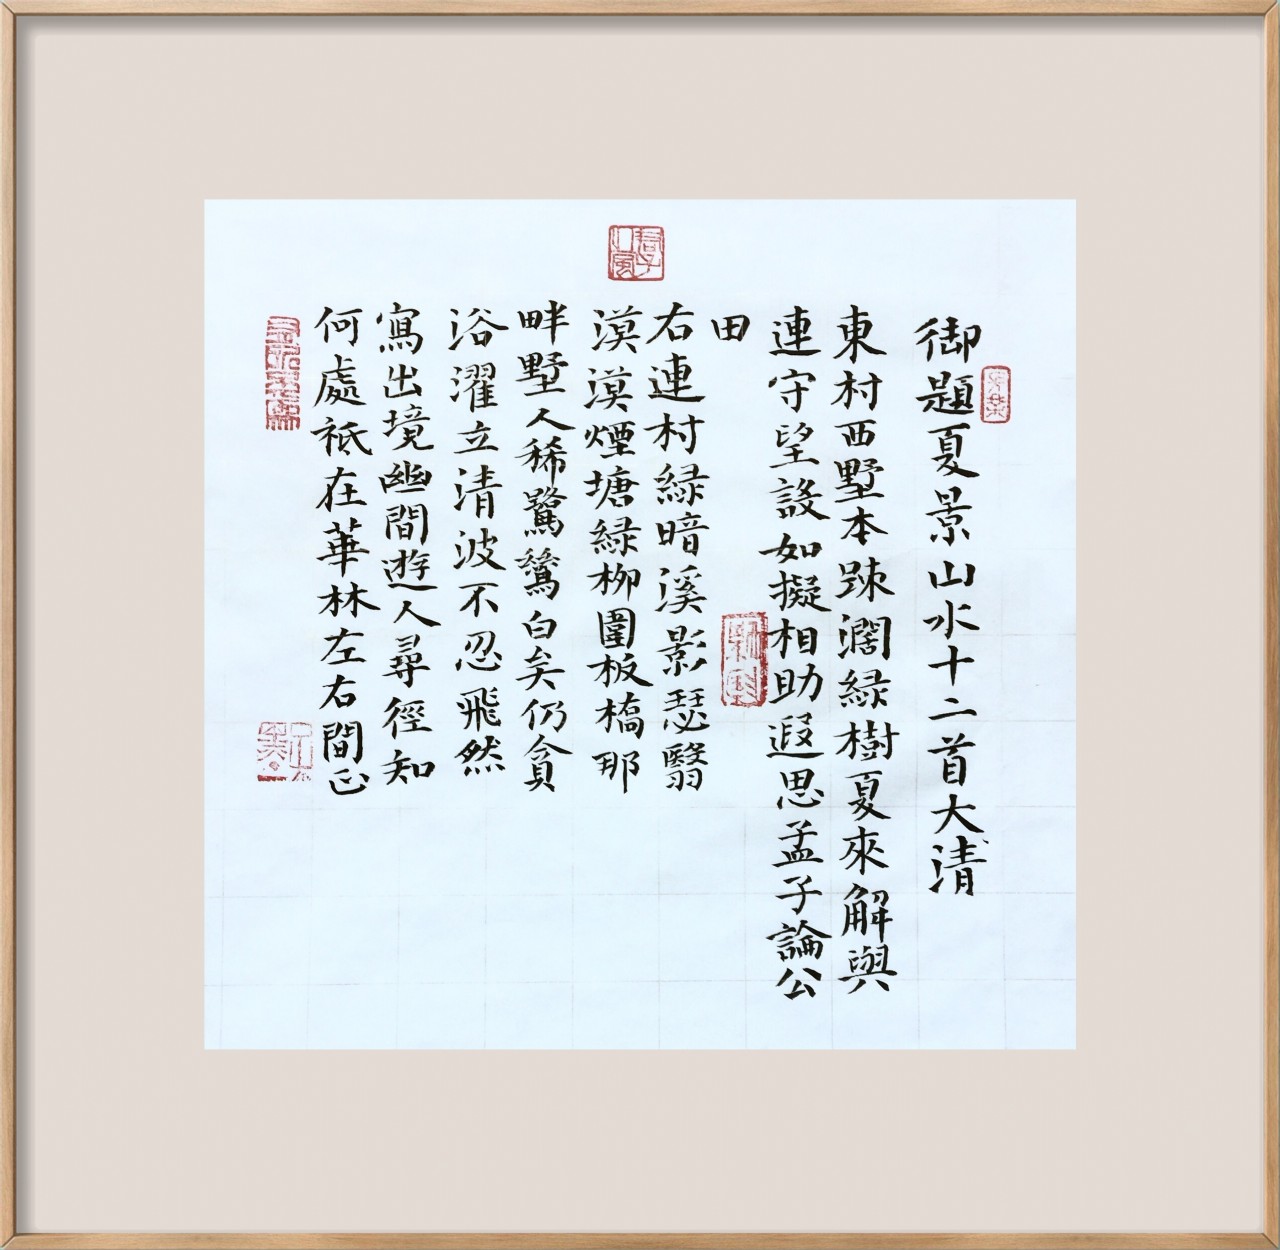 御題夏景山水十二首大清
東村西墅本踈濶緑樹夏來解與
連守望設如擬相助遐思孟子論公
田
右連村緑暗溪影瑟翳
漠漠煙塘緑柳圍板橋那
畔墅人稀鷺鷥白矣仍貪
浴濯立清波不忍飛然
寫出境幽間遊人尋徑知
何處祗在華林左右間